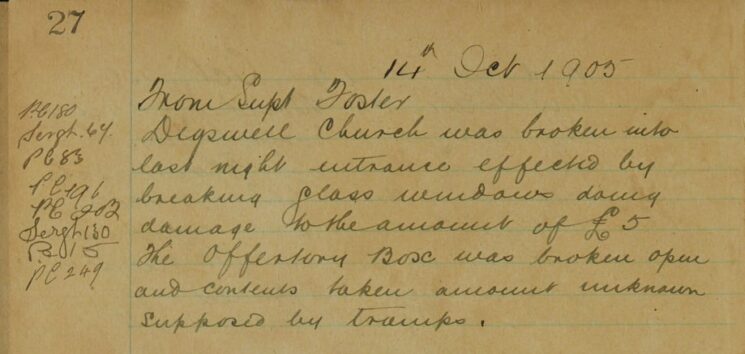 27
14th Oct 1905
From Supt Foster
Digswell Church was broken into
last night entrance effected by
breaking glass windows doing
damage to the amount of £5
The Offertory Box was broken open
and contents taken amount unknown
supposed by tramps.
PC 180
Sergt. 64.
PC 83
PC 196
PC 202
Sergt 130
PC 15
PC 249